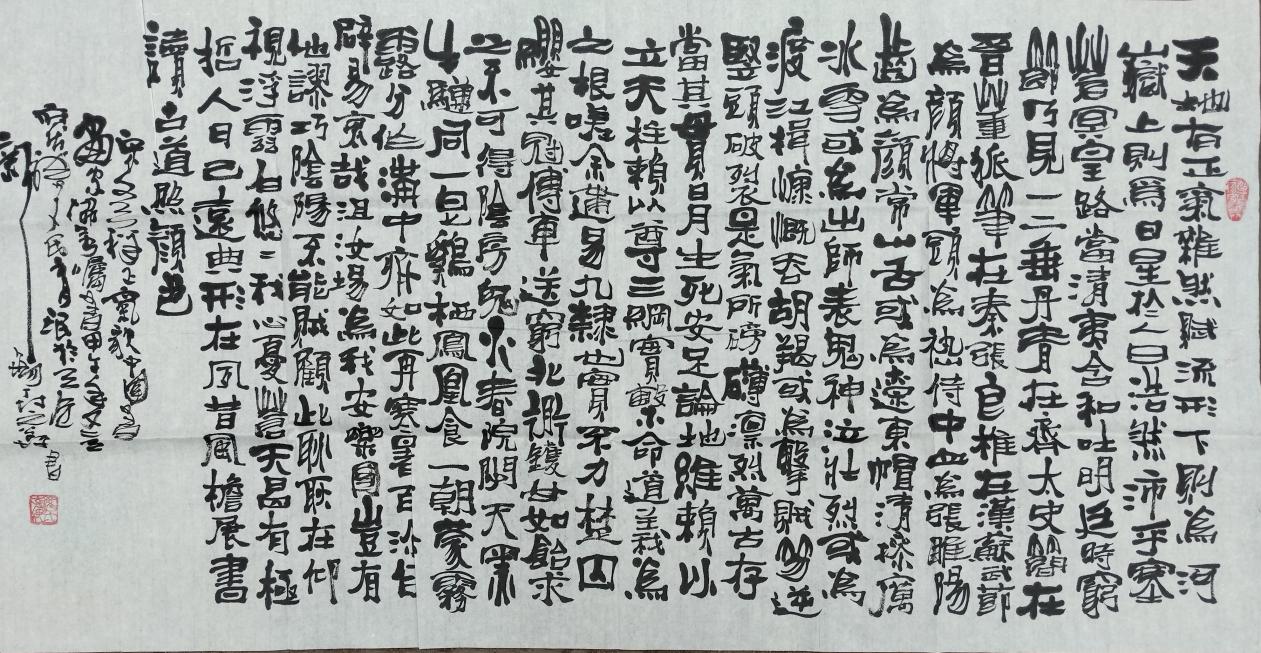 天地有正氣雜然賦流形下則為河
嶽上則為日星於人曰浩然沛乎塞
蒼冥皇路當清夷含和吐明廷時窮
節乃見一二垂丹青在齊太史簡在
晉董狐筆在秦張良椎在漢蘇武節
為顏將軍頭為嵇侍中血為張睢陽
齒為顏常山舌或為遼東帽清操厲
冰雪或為出師表鬼神泣壯烈或為
渡江楫慷慨吞胡羯或為擊賊笏逆
豎頭破裂是氣所磅礴凜烈萬古存
當其貫日月生死安足論地維賴以
立天柱賴以尊三綱實繫命道義為
之根嗟余遘易九隸也實不力楚囚
纓其冠傳車送窮北鑊甘如飴求
之不可得陰房火春院閟天黑
牛驥同一皂雞栖鳳凰食一朝蒙霧
露分作溝中瘠如此再寒暑百沴自
辟易哀哉沮洳場為我安樂國豈有
他謬巧陰陽不能賊顧此耿耿在仰
視浮雲白悠悠我心憂蒼天曷有極
哲人日已遠典刑在夙昔風檐展書
讀古道照顏色
宋文天祥正氣歌中國書